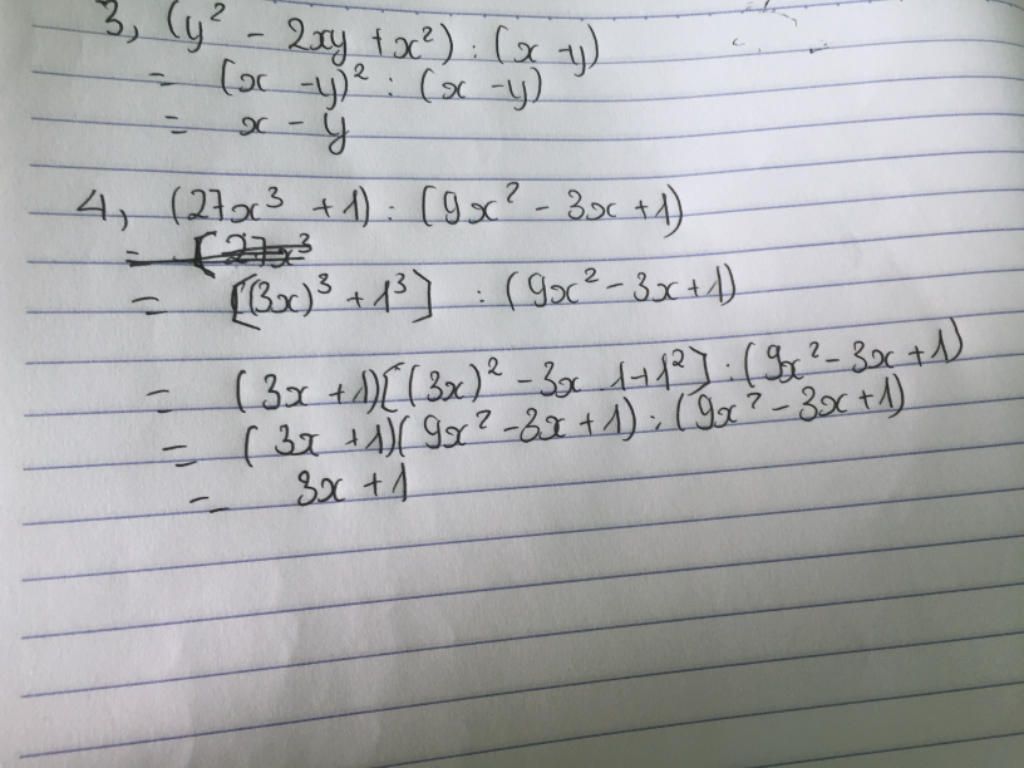 3, (y² - 2xy + x²) : (x - y)
= (x - y)² : (x - y)
= x - y
4, (27x³ + 1) : (9x² - 3x + 1)
= [27x³
= [(3x)³ + 1³] : (9x² - 3x + 1)
= (3x + 1)[(3x)² - 3x 1 + 1²] : (9x² - 3x + 1)
= (3x + 1)(9x² - 3x + 1) : (9x² - 3x + 1)
= 3x + 1